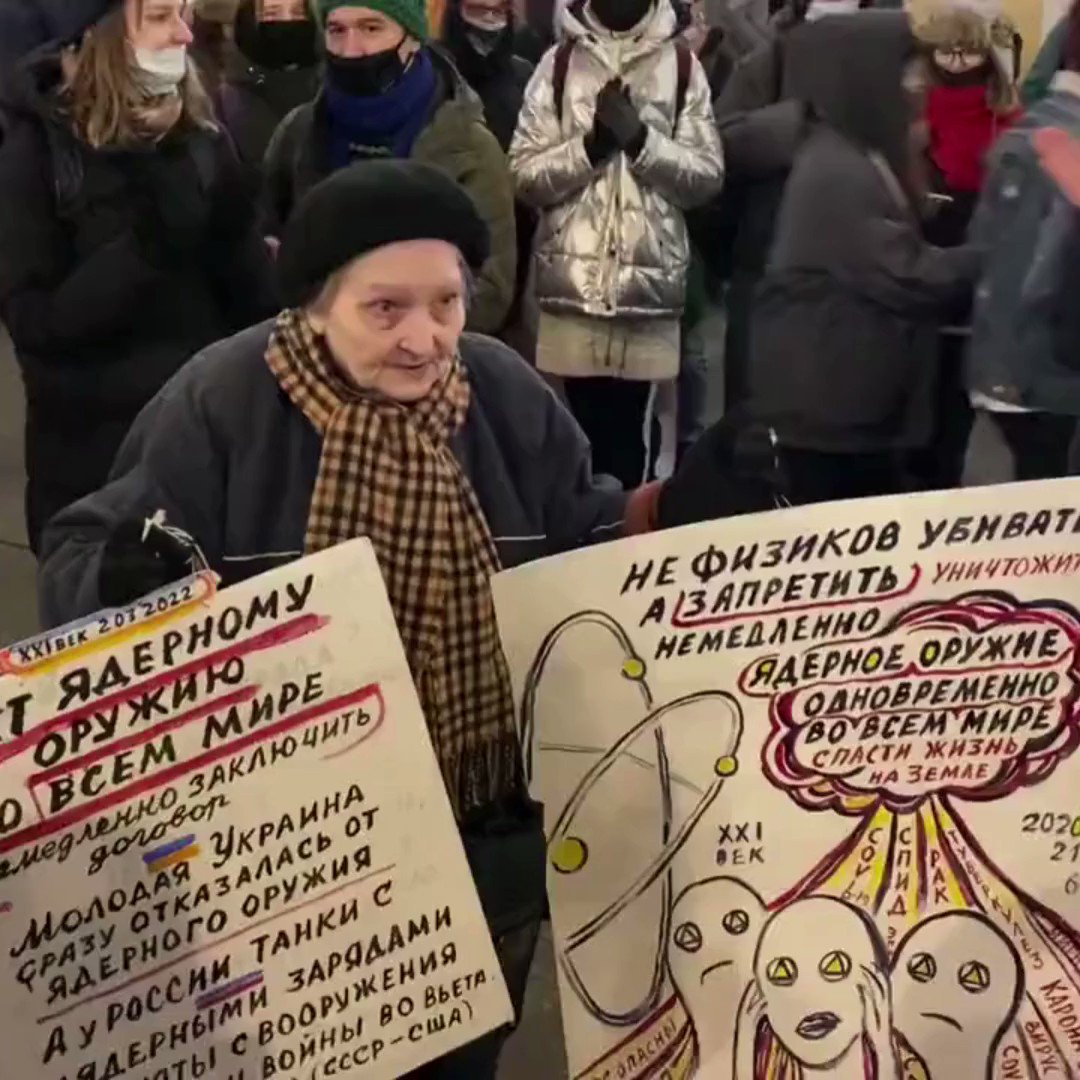 XXI ВЕК 2 03 2022
ЯДЕРНОМУ
ОРУЖИЮ
ВСЕМ МИРЕ
ЗАКЛЮЧИТЬ
договор
МОЛОДАЯ УКРАИНА
СРАЗУ ОТКАЗАЛАСЬ ОТ
ЯДЕРНОГО ОРУЖИЯ
А У РОССИИ ТАНКИ С
ЯДЕРНЫМИ ЗАРЯДАМИ
С ВООРУЖЕНИЯ
ВОЙНЫ ВО ВЬЕТА.
(СССР-США)
НЕ ФИЗИКОВ УБИВАТЬ
А ЗАПРЕТИТЬ УНИЧТОЖИТ
НЕМЕДЛЕННО
ЯДЕРНОЕ ОРУЖИЕ
ОДНОВРЕМЕННО
ВО ВСЕМ МИРЕ
СПАСТИ ЖИЗНЬ
НА ЗЕМЛЕ
XXI
ВЕК
202
21
6
СПИД
РАК
КАРОНА
ВИРУС